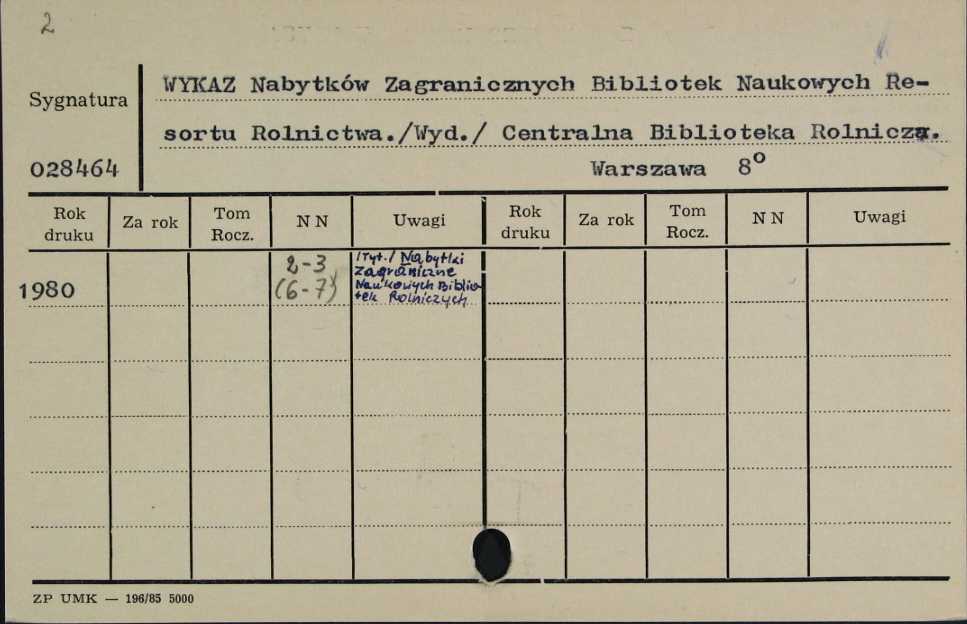 2
WYKAZ Nabytków Zagranicznych Bibliotek Naukowych Re-
Sygnatura
sortu Rolnictwa./Wyd./ Centralna Biblioteka Rolnicza.
028464
Warszawa 8°
Rok druku Za rok Tom Rocz. N N Uwagi Rok druku Za rok Tom Rocz. N N Uwagi
1980
2-3
(6-7)
/Tyt./ Nabytki
Zagraniczne
Naukowych Biblio-
tek Rolniczych
ZP UMK — 196/85 5000